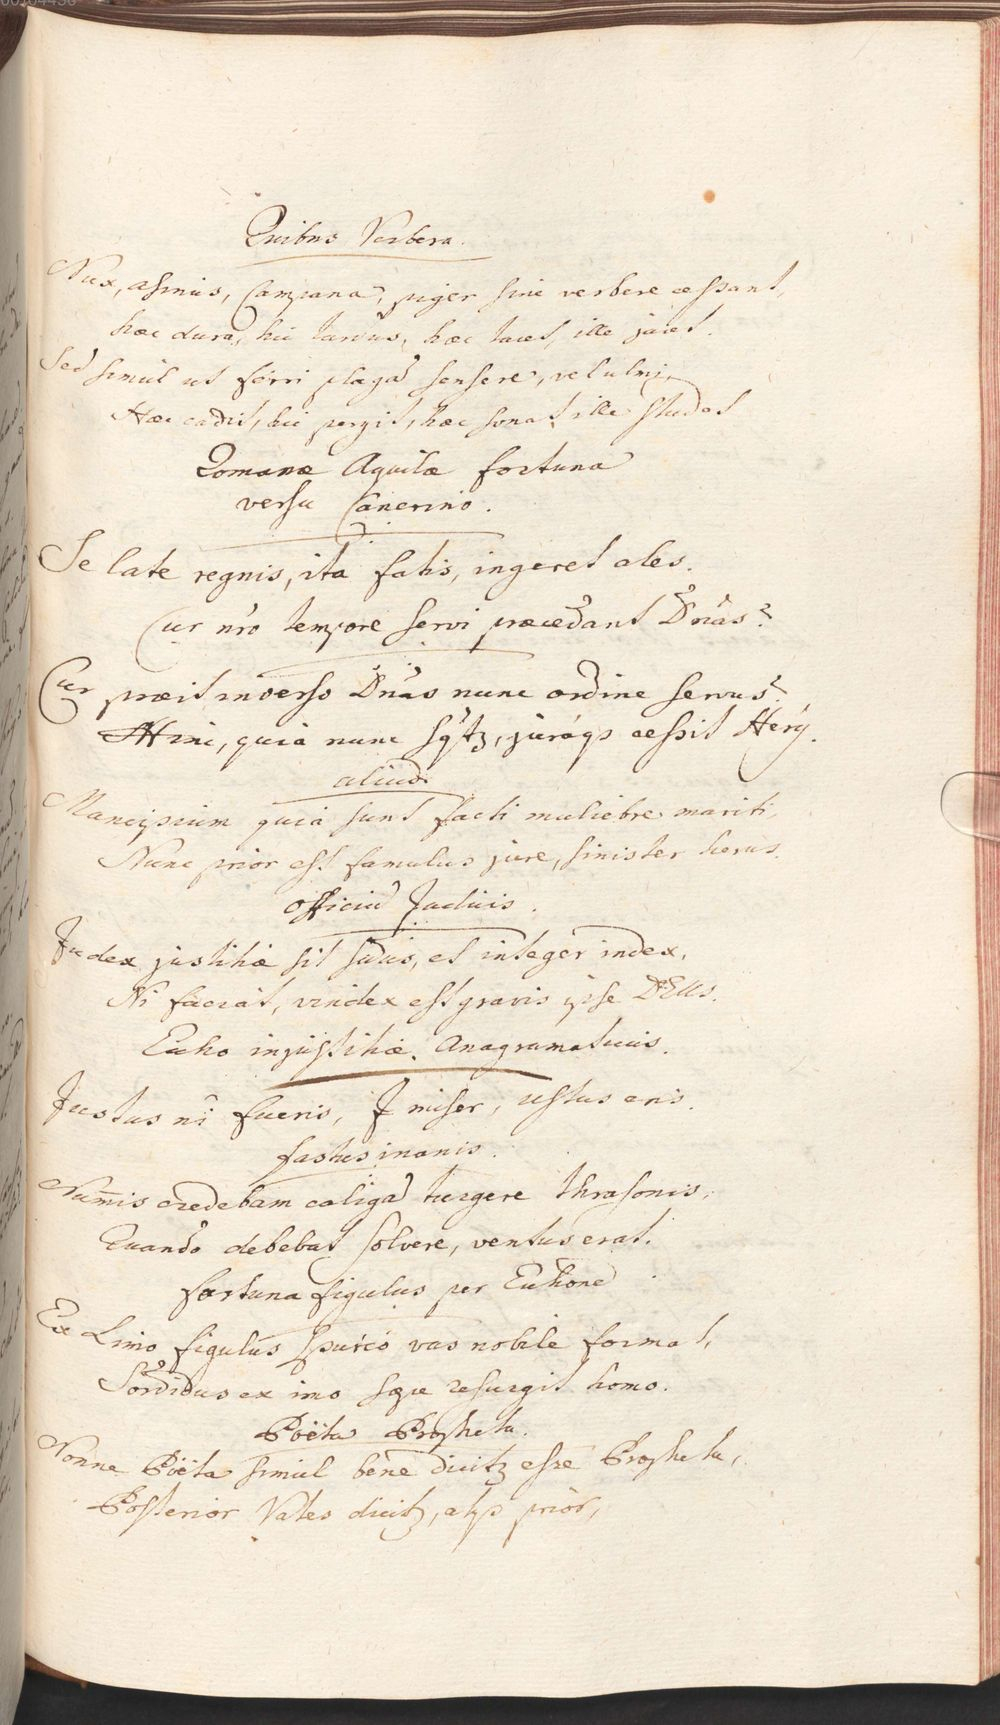 Quibus Verbera.
Nux, asinus, Campana, piger sine verbere cessant,
hæc dura, hic tardus, hæc tacet, ille jacet.
Sed simul ut ferri plagã sensere, vel ulni,
Hæc cadit, hic pergit, hæc sonat, ille studet
Romanæ Aquilæ fortuna
versu Cancrino.
Se late regnis, ita fatis, ingeret ales.
Cur nr̃o tempore servi præcedant Dñas?
Cur præit inverso Dñas nunc ordine servus?
Hinc, quia nunc juráqȝ cessit Herij.
aliud.
Mancipium quia sunt facti muliebre mariti,
Nunc prior est famulus jure, sinister herus.
Officiũ Judicis.
Judex justitiæ sit judis, et integer index,
Ni faciat, vindex est gravis ipse DEUs.
Echo injustitiæ. Anagramaticus.
Justus ni fueris, J miser, ustus eris.
fastus inanis.
Num̃is credebam caligã turgere thrasonis,
Quando debebat solvere, ventus erat.
fortuna figulus per Echonẽ
Ex Limo figulus spurcò vas nobile format,
Sordidus ex imo sæpe resurgit homo.
Poëta Propheta.
Nonne Poëta simul bene dicitȝ esse Propheta,
Posterior Vates dicitȝ, atqȝ priòr,